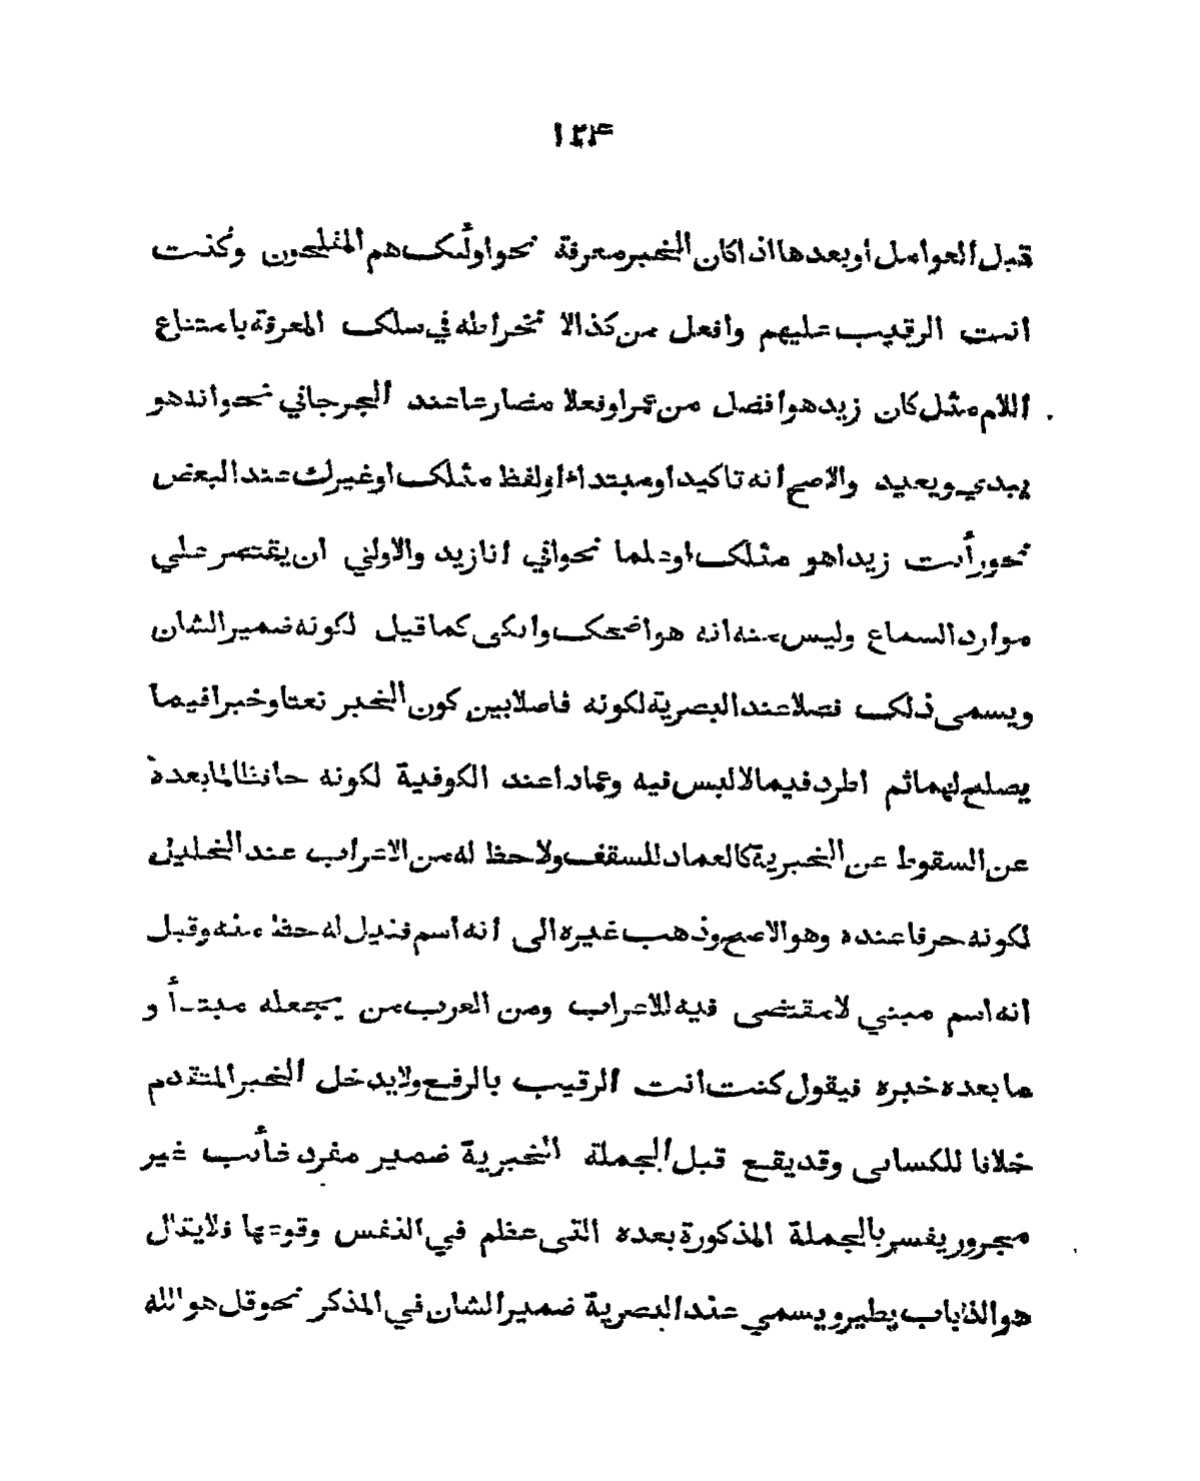 ١٢٣
قبل العوامل أو بعدها اذا كان الخبر معرفة نحو اولٓئك هم المفلحون وكنت
انت الرقيب عليهم وافعل من كذا لا نخراطه في سلك المعرفة بامتناع
اللام مثل كان زيد هو افضل من عمرو او فعلا مضارعا عند الجرجاني نحو انه هو
يبدي ويعيد والاصح أنه تاكيد او مبتداء او لفظ مثلك او غيرك عند البعض
نحو رأيت زيدا هو مثلك او علما نحو اني انا زيد والاولي ان يقتصر علي
موارد السماع وليس منه انه هو اضحك وابكى كما قيل لكونه ضمير الشان
ويسمى ذلك فصلا عند البصرية لكونه فاصلا بين كون الخبر نعتا وخبرا فيما
يصلح لهما ثم اطرد فيما لا لبس فيه وعمادا عند الكوفية لكونه حافظا لما بعدة
عن السقوط عن الخبرية كالعماد للسقف ولا حظ له من الاعراب عند الخليل
لكونه حرفا عنده وهو الاصح وذهب غيره الى أنه اسم فقيل له حظ منه وقيل
انه اسم مبني لا مقتضى فيه للاعراب ومن العرب من يجعله مبتدأ و
ما بعده خبره فيقول كنت انت الرقيب بالرفع ولا يدخل الخبر المتقدم
خلافا للكسائى وقد يقع قبل الجملة الخبرية ضمير مفرد غائب غير
مجرور يفسر بالجملة المذكورة بعده التى عظم في النفس وقوعها فلا يقال
هو الذباب يطير ويسمي عند البصرية ضمير الشان في المذكر نحو قل هو الله